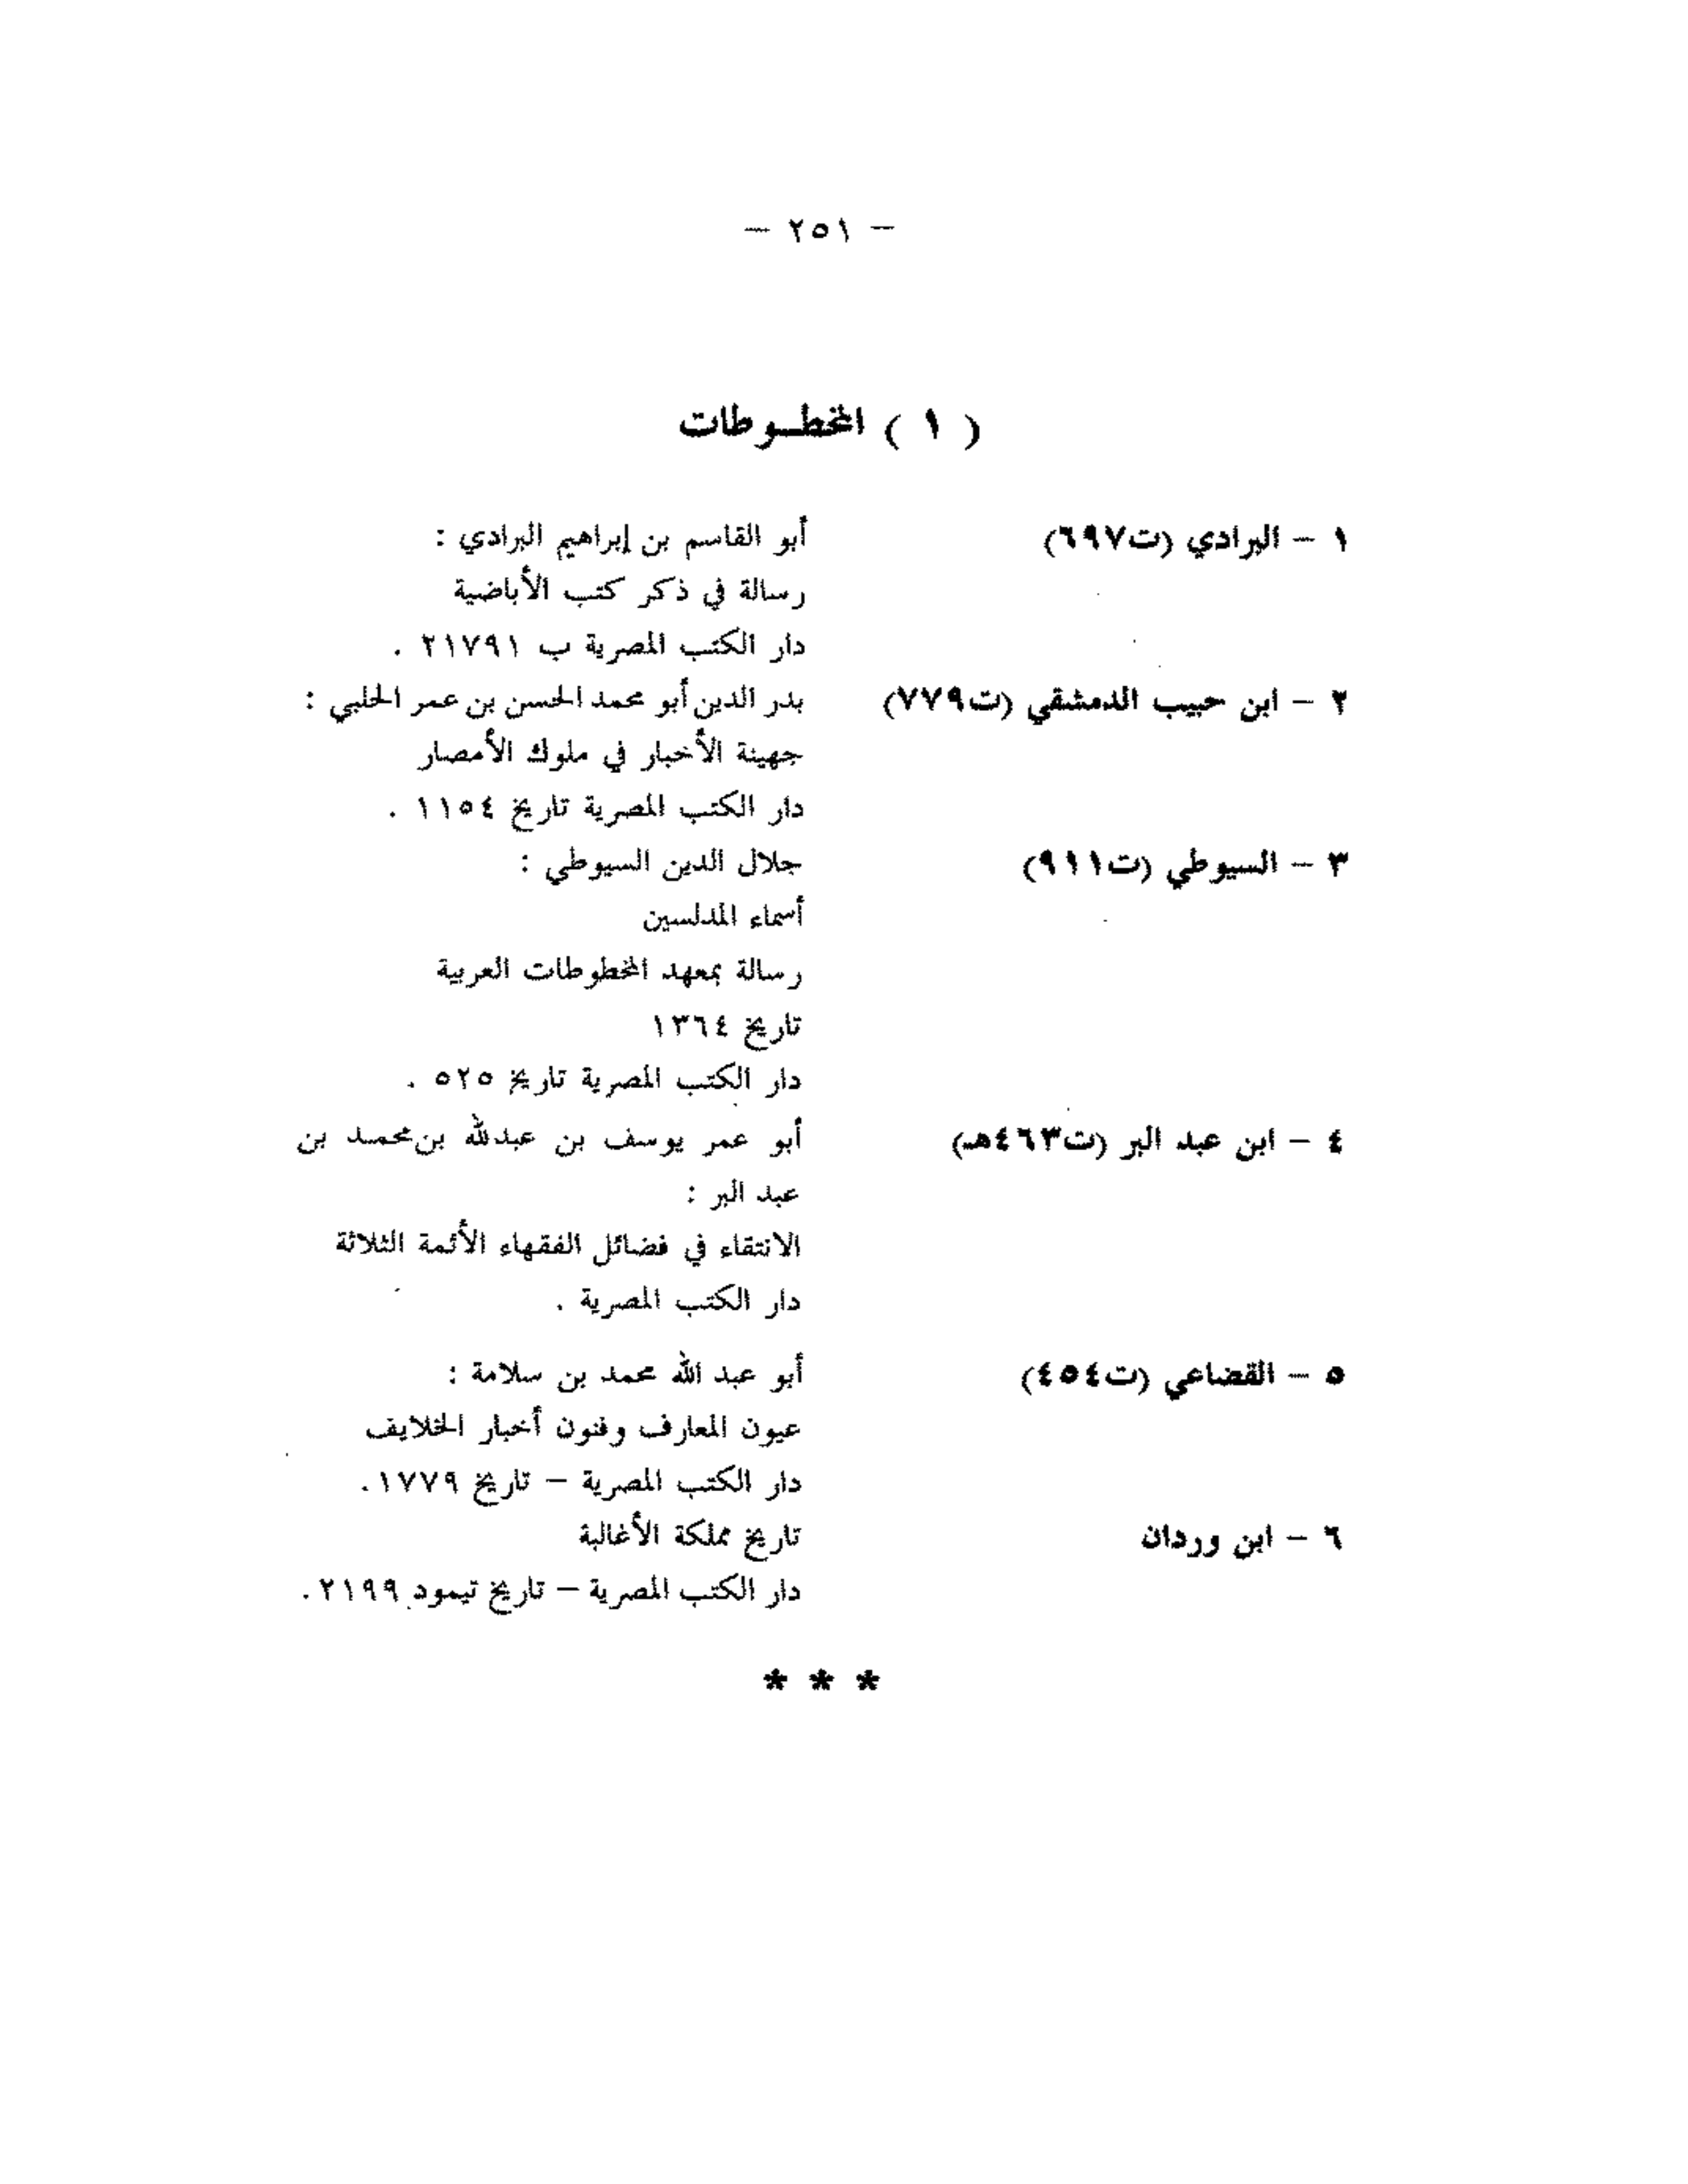 — ٢٥١ —
( ١ ) المخطوطات
١ — البرادي (ت٦٩٧) أبو القاسم بن إبراهيم البرادي :
رسالة في ذكر كتب الأباضية
دار الكتب المصرية ب ٢١٧٩١ .
٢ — ابن حبيب الدمشقي (ت٧٧٩) بدر الدين أبو محمد الحسن بن عمر الحلبي :
جهينة الأخبار في ملوك الأمصار
دار الكتب المصرية تاريخ ١١٥٤ .
٣ — السيوطي (ت٩١١) جلال الدين السيوطي :
أسماء المدلسين
رسالة بمعهد المخطوطات العربية
تاريخ ١٣٦٤
دار الكتب المصرية تاريخ ٥٢٥ .
٤ — ابن عبد البر (ت٤٦٣هـ) أبو عمر يوسف بن عبدلله بن محمد بن
عبد البر :
الانتقاء في فضائل الفقهاء الأئمة الثلاثة
دار الكتب المصرية .
٥ — القضاعي (ت٤٥٤) أبو عبد الله محمد بن سلامة :
عيون المعارف وفنون أخبار الخلايف
دار الكتب المصرية — تاريخ ١٧٧٩.
٦ — ابن وردان تاريخ مملكة الأغالبة
دار الكتب المصرية — تاريخ تيمود ٢١٩٩.
* * *